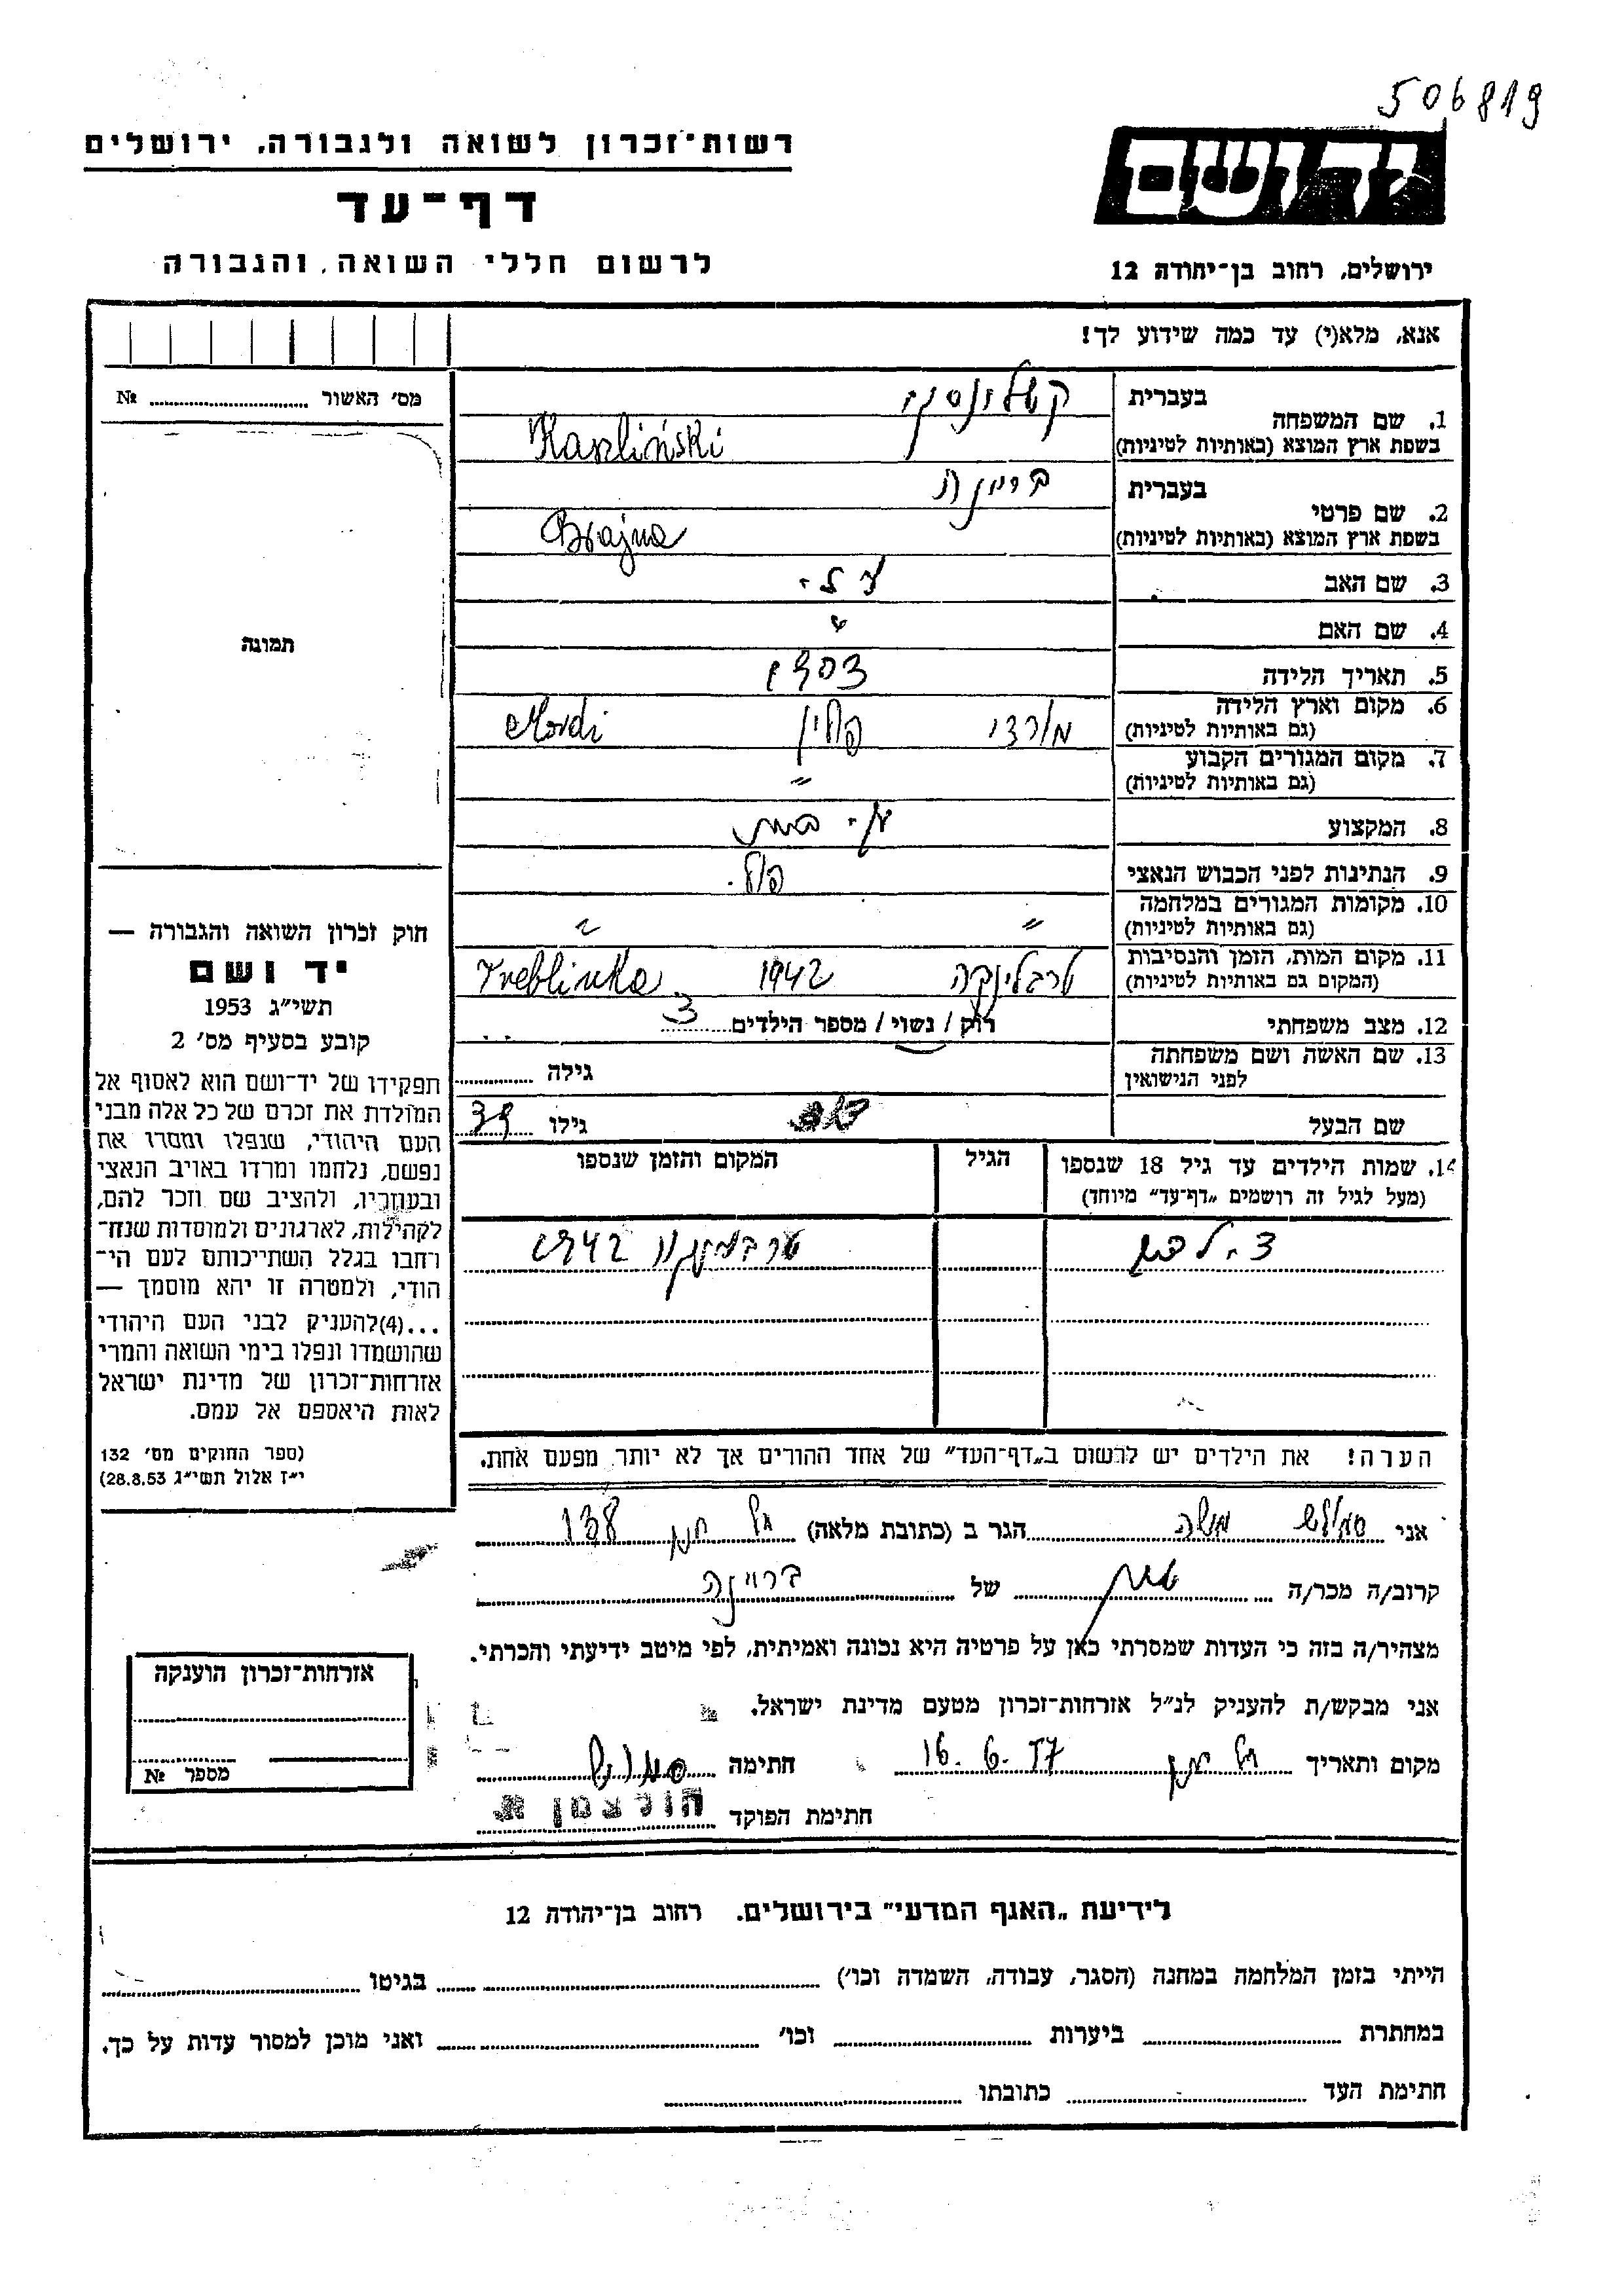 506819
רשות־זכרון לשואה ולגבורה, ירושלים
ידושם
דף־עד
לרשום חללי השואה והגבורה
ירושלים, רחוב בן־יהודה 12
אנא, מלא(י) עד כמה שידוע לך!
מס' האשור № 
בעברית
1. שם המשפחה
Kaszliński
בשפת ארץ המוצא (באותיות לטיניות)
בעברית
2. שם פרטי
Brajna
בשפת ארץ המוצא (באותיות לטיניות)
3. שם האב
4. שם האם
תמונה
5. תאריך הלידה 1903
6. מקום וארץ הלידה מורדי פולין Mordi
(גם באותיות לטיניות)
7. מקום המגורים הקבוע
(גם באותיות לטיניות) "
8. המקצוע
9. הנתינות לפני הכבוש הנאצי פול.
10. מקומות המגורים במלחמה
(גם באותיות לטיניות) "
11. מקום המות, הזמן והנסיבות
(המקום גם באותיות לטיניות) טרבלינקה 1942 Treblinka
12. מצב משפחתי רוק / נשוי / מספר הילדים 3
13. שם האשה ושם משפחתה
לפני הנישואין גילה
שם הבעל גילו 39
14. שמות הילדים עד גיל 18 שנספו הגיל המקום והזמן שנספו
(מעל לגיל זה רושמים „דף־עד" מיוחד)
1942
הערה! את הילדים יש לרשום ב„דף־העד" של אחד ההורים אך לא יותר מפעם אחת.
חוק זכרון השואה והגבורה —
יד ושם
תשי״ג 1953
קובע בסעיף מס' 2
תפקידו של יד־ושם הוא לאסוף אל
המולדת את זכרם של כל אלה מבני
העם היהודי, שנפלו ומסרו את
נפשם, נלחמו ומרדו באויב הנאצי
ובעוזריו, ולהציב שם וזכר להם,
לקהילות, לארגונים ולמוסדות שנח־
רחבו בגלל השתייכותם לעם הי־
הודי, ולמטרה זו יהא מוסמך —
...(4)להעניק לבני העם היהודי
שהושמדו ונפלו בימי השואה והמרי
אזרחות־זכרון של מדינת ישראל
לאות היאספם אל עמם.
(ספר החוקים מס' 132
י״ז אלול תשי״ג 28.8.53)
אני משה הגר ב (כתובת מלאה) 138
קרוב/ה מכר/ה של בריינה
מצהיר/ה בזה כי העדות שמסרתי כאן על פרטיה היא נכונה ואמיתית, לפי מיטב ידיעתי והכרתי.
אני מבקש/ת להעניק לנ״ל אזרחות־זכרון מטעם מדינת ישראל.
מקום ותאריך 16.6.57 חתימה
חתימת הפוקד הולצמן א.
אזרחות־זכרון הוענקה
מספר №
לידיעת „האגף המדעי" בירושלים. רחוב בן־יהודה 12
הייתי בזמן המלחמה במחנה (הסגר, עבודה, השמדה וכו') בגיטו
במחתרת ביערות וכו' ואני מוכן למסור עדות על כך.
חתימת העד כתובתו